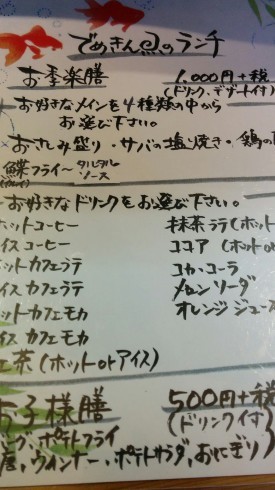 でめきん魚のランチ
お季楽膳 1,000円+税
(ドリンク、デザート付)
お好きなメインを4種類の中から
お選び下さい。
おさしみ盛り・サバの塩焼き・鶏の
鰈フライ〜タルタルソース
(カレイ)
お好きなドリンクをお選び下さい。
ホットコーヒー 抹茶ラテ(ホット
イスコーヒー ココア(ホットo
ットカフェラテ コカ・コーラ
イスカフェラテ メロンソーダ
ットカフェモカ オレンジジュース
イスカフェモカ
紅茶(ホットorアイス)
お子様膳 500円+税
(ドリンク付)
ーグ、ポテトフライ
ウインナー、ポテトサラダ、おにぎり)